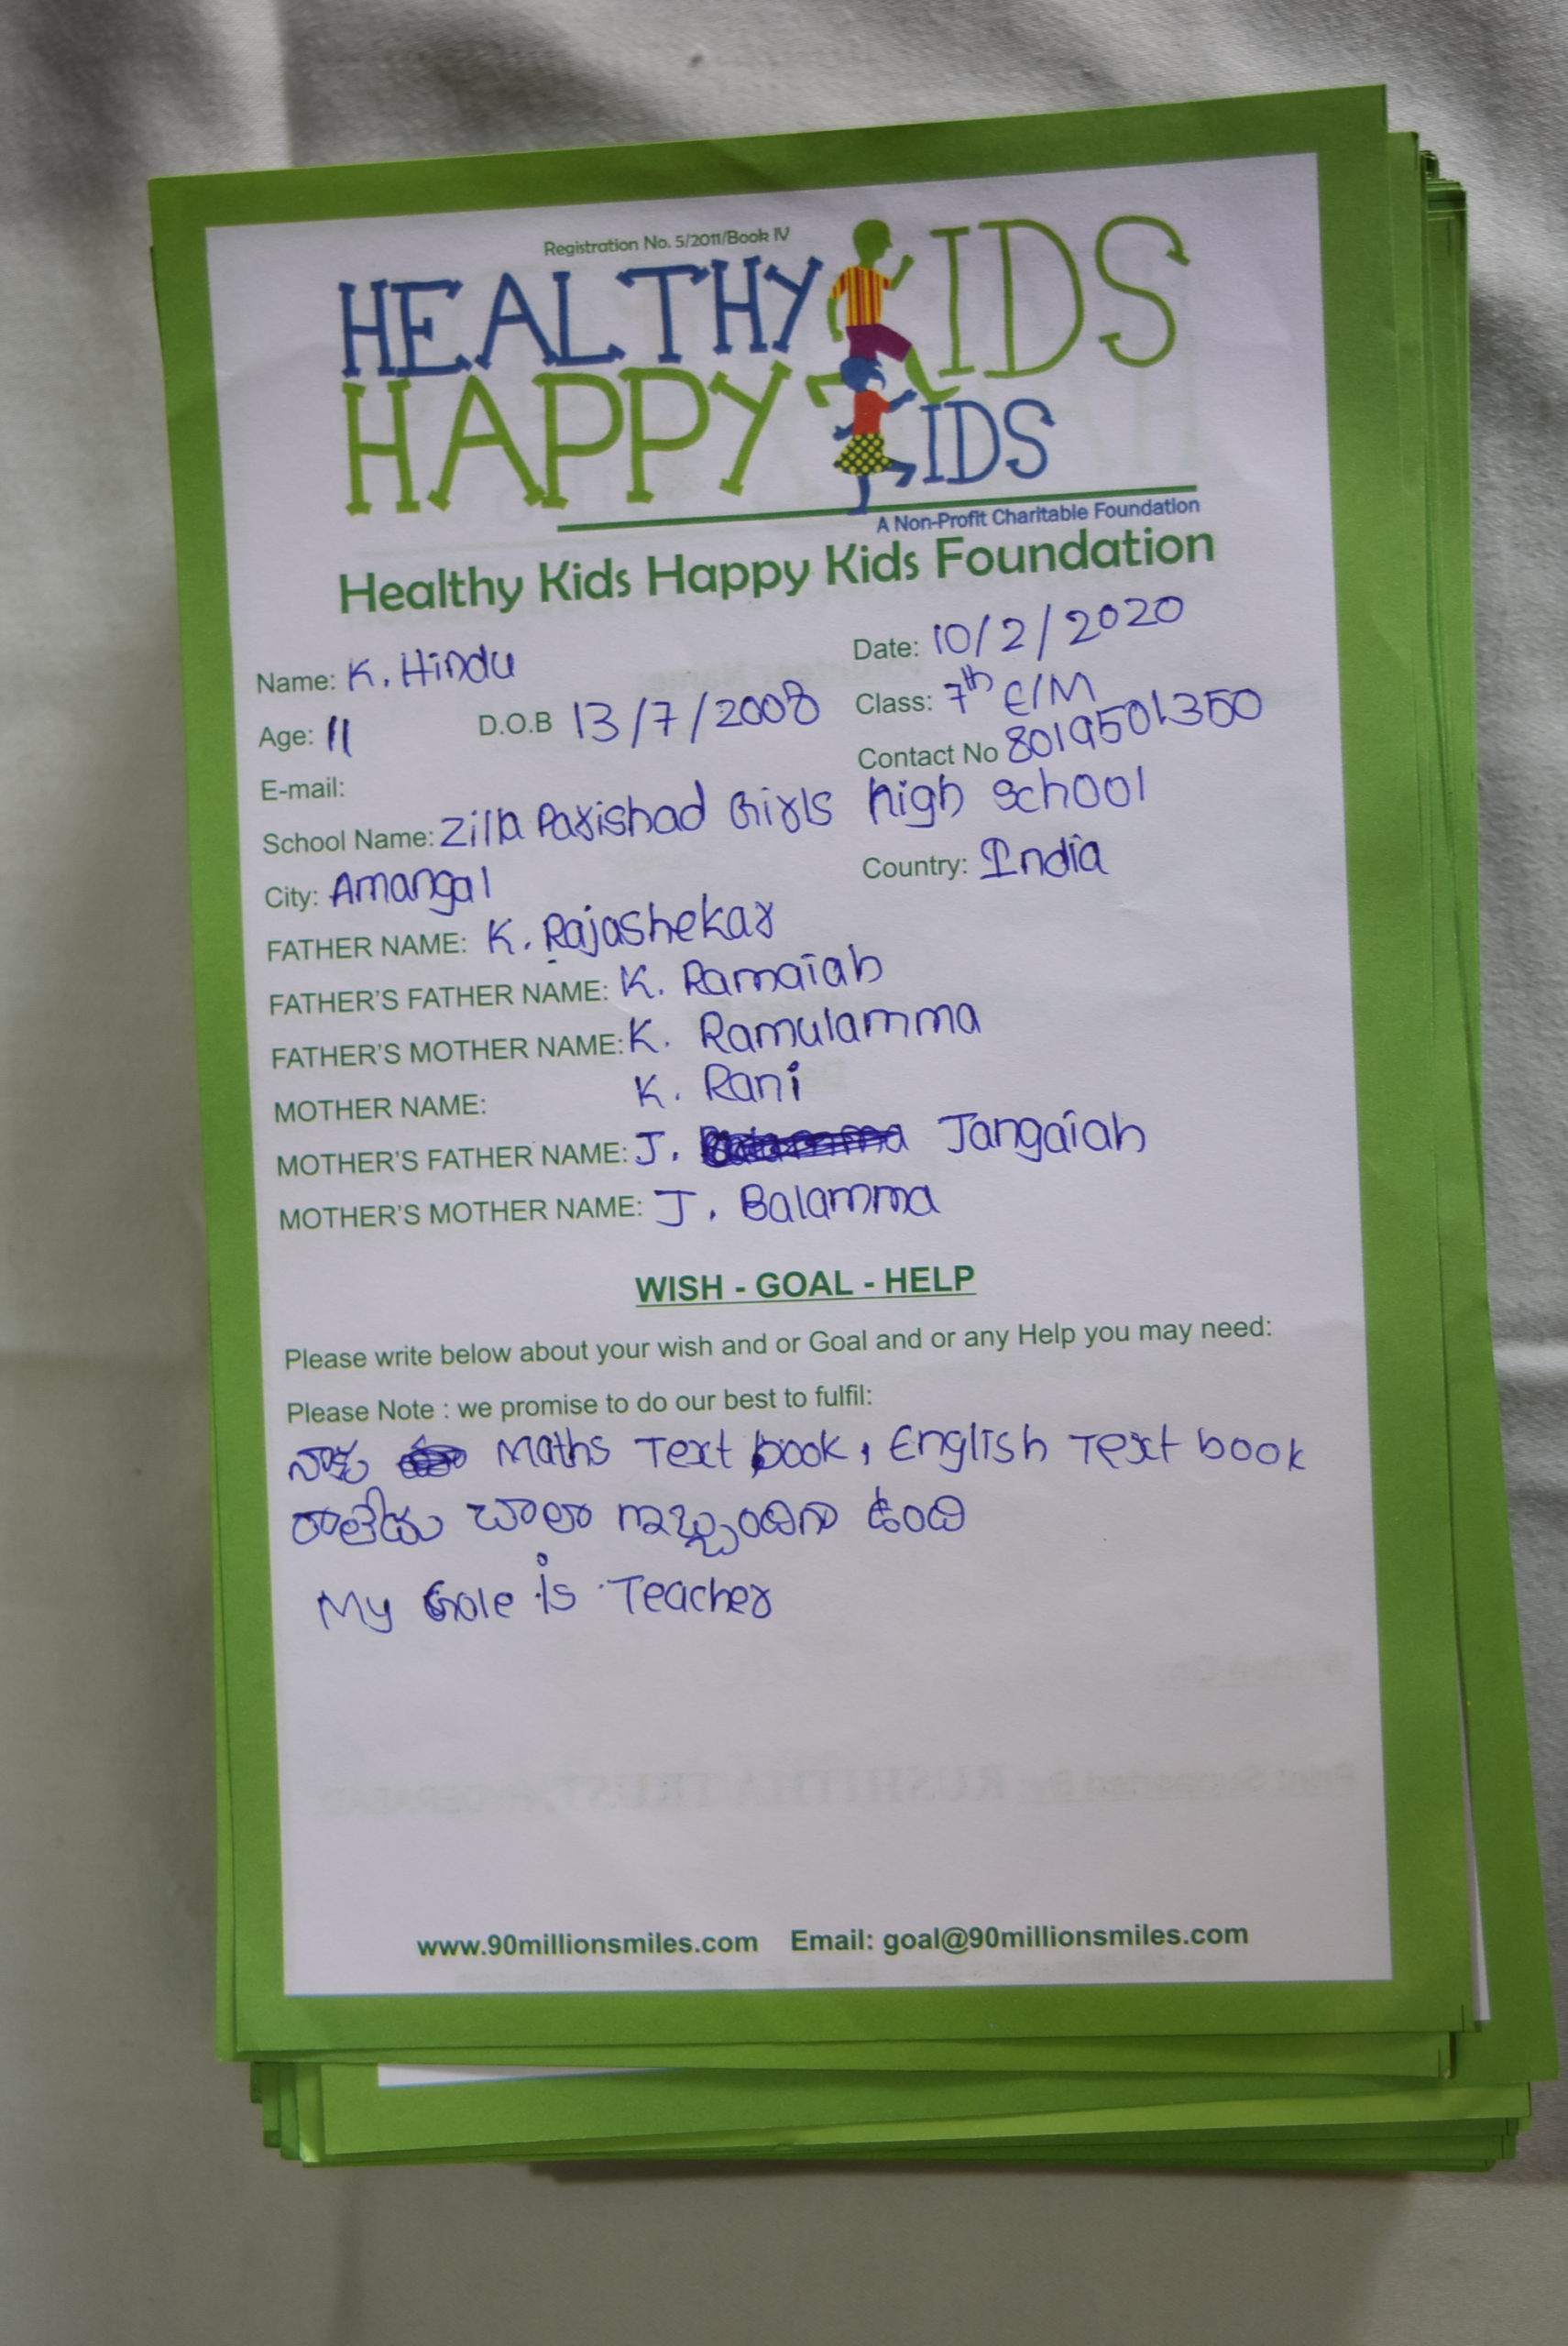 Registration No. 5/2011/Book IV
HEALTHY KIDS
HAPPY KIDS
A Non-Profit Charitable Foundation
Healthy Kids Happy Kids Foundation
Name: K. Hindu Date: 10/2/2020
Age: 11 D.O.B 13/7/2008 Class: 7th E/M
E-mail: Contact No 8019501350
School Name: Zilla Parishad Girls high school
City: Amangal Country: India
FATHER NAME: K. Rajashekar
FATHER'S FATHER NAME: K. Ramaiah
FATHER'S MOTHER NAME: K. Ramulamma
MOTHER NAME: K. Rani
MOTHER'S FATHER NAME: J. Jangaiah
MOTHER'S MOTHER NAME: J. Balamma
WISH - GOAL - HELP
Please write below about your wish and or Goal and or any Help you may need:
Please Note : we promise to do our best to fulfil:
నాకు Maths Text book, English Text book
రాలేదు చాలా ఇబ్బందిగా ఉంది
My Gole is Teacher
www.90millionsmiles.com Email: goal@90millionsmiles.com